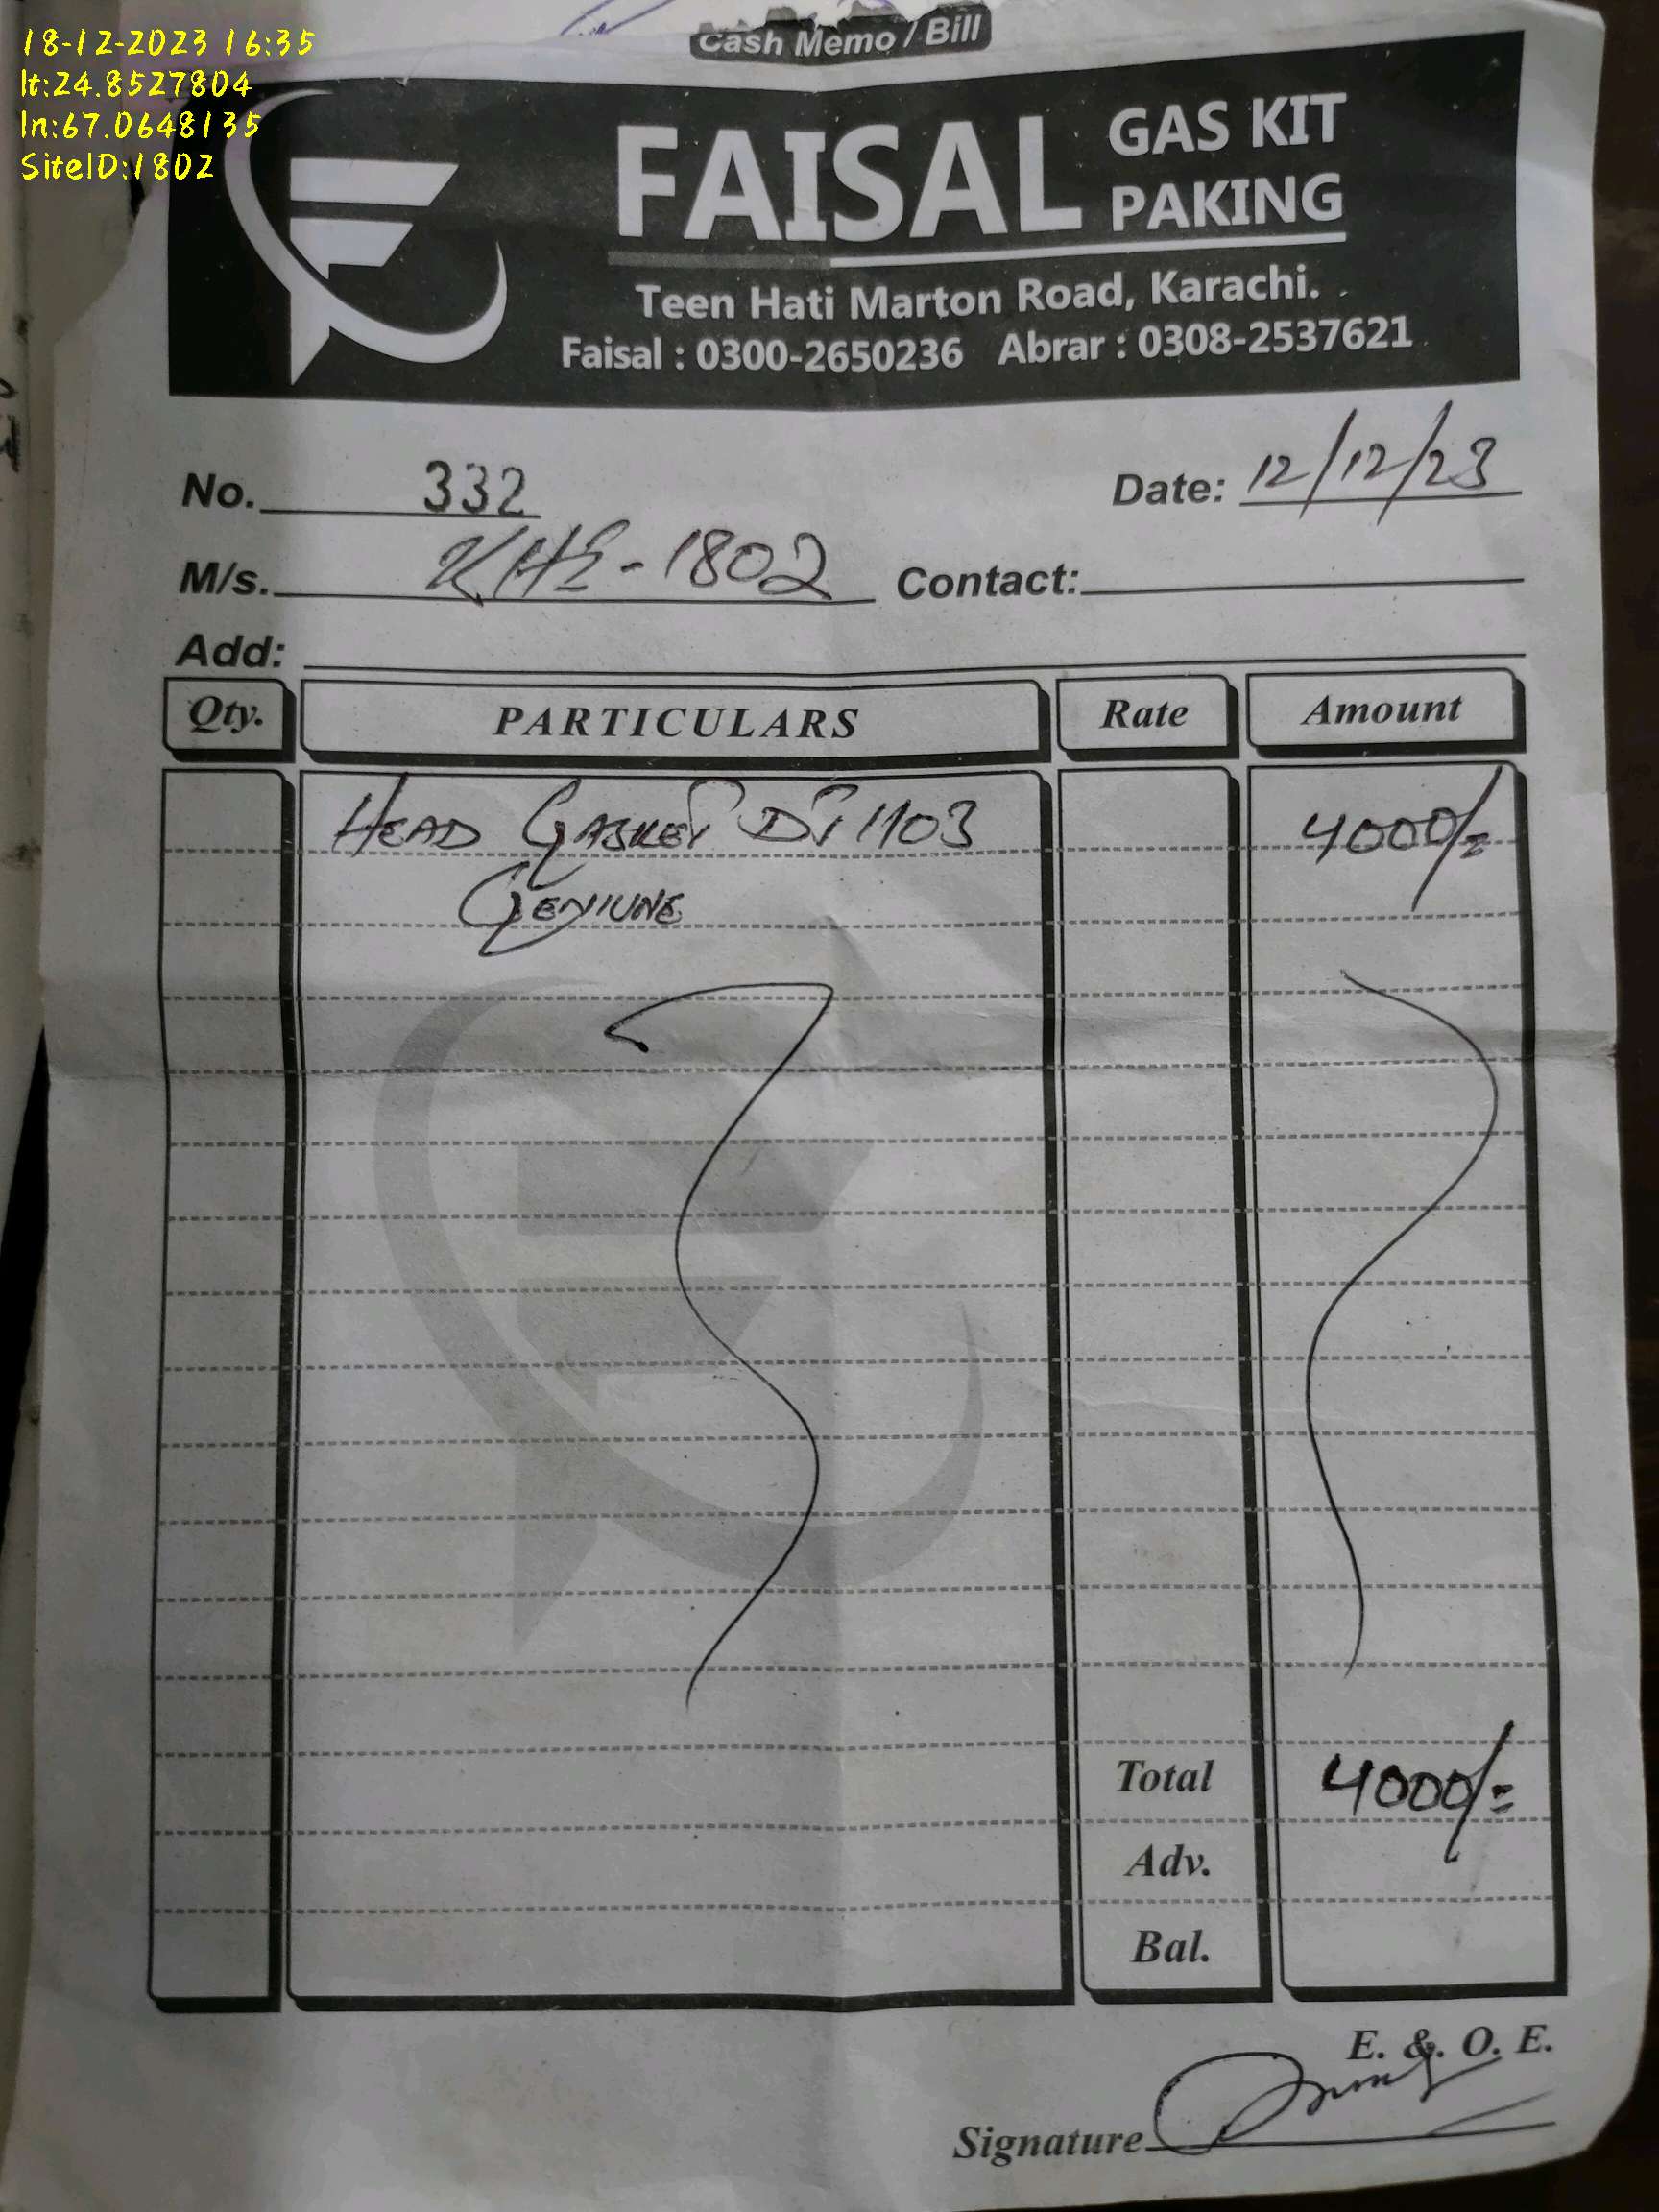 18-12-2023 16:35
lt:24.8527804
ln:67.0648135
SiteID:1802
Cash Memo / Bill
FAISAL GAS KIT PAKING
Teen Hati Marton Road, Karachi.
Faisal : 0300-2650236 Abrar : 0308-2537621
No. 332 Date: 12/12/23
M/s. KHE-1802 Contact:
Add:
Qty. PARTICULARS Rate Amount
HEAD GASKET DT 1103 4000/=
GENIUNE
Total 4000/=
Adv.
Bal.
E. & O. E.
Signature